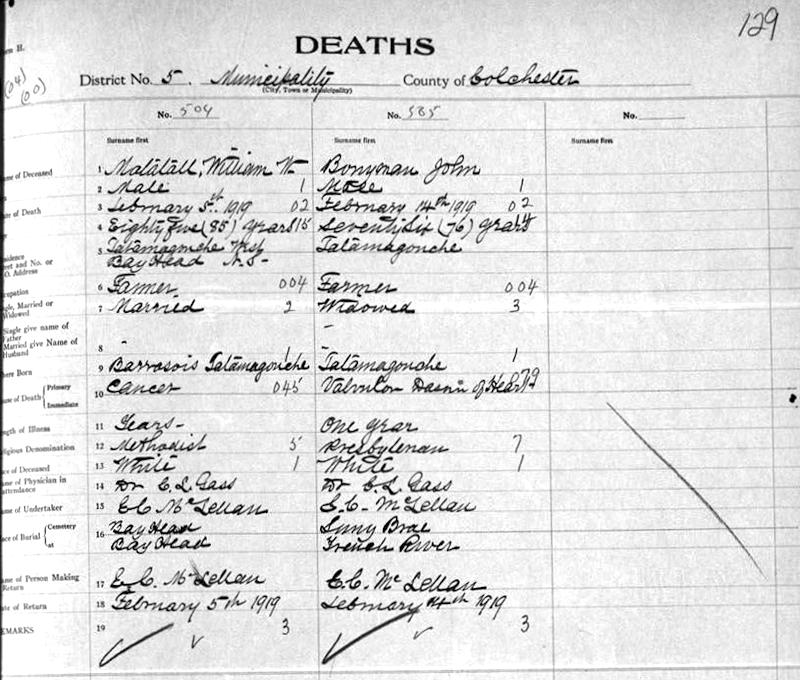 129
DEATHS
District No. 5. Municipality County of Colchester
(City, Town or Municipality)
No. 504 No. 585 No.
Surname first Surname first Surname first
ame of Deceased 1 Matatall, William W Bonyman John
2 Male 1 Male 1
ate of Death 3 February 5th 1919 02 February 14th 1919 02
4 Eighty five (85) years 15 Seventy Six (76) years
5 Tatamagouche West Tatamagouche
eet and No. or O. Address Bay Head N.S-
cupation 6 Farmer 004 Farmer 004
gle, Married or Widowed 7 Married 2 Widowed 3
Single give name of Father
Married give Name of Husband
8 - -
here Born 9 Tatamagouche 1 Tatamagouche 1
use of Death Primary Immediate 10 Cancer 045 of Heart 79
ngth of Illness 11 Years- One year
eligious Denomination 12 Methodist 5 Presbyterian 7
ce of Deceased 13 White 1 White 1
ame of Physician in attendance 14 Dr C. L. Gass Dr C. L. Gass
ame of Undertaker 15 E C McLellan E.C. McLellan
ace of Burial Cemetery at 16 Bay Head Brae
Bay Head French River
ame of Person Making Return 17 E. C. McLellan E.C. McLellan
ate of Return 18 February 5th 1919 February 14th 1919
EMARKS 19 3 3